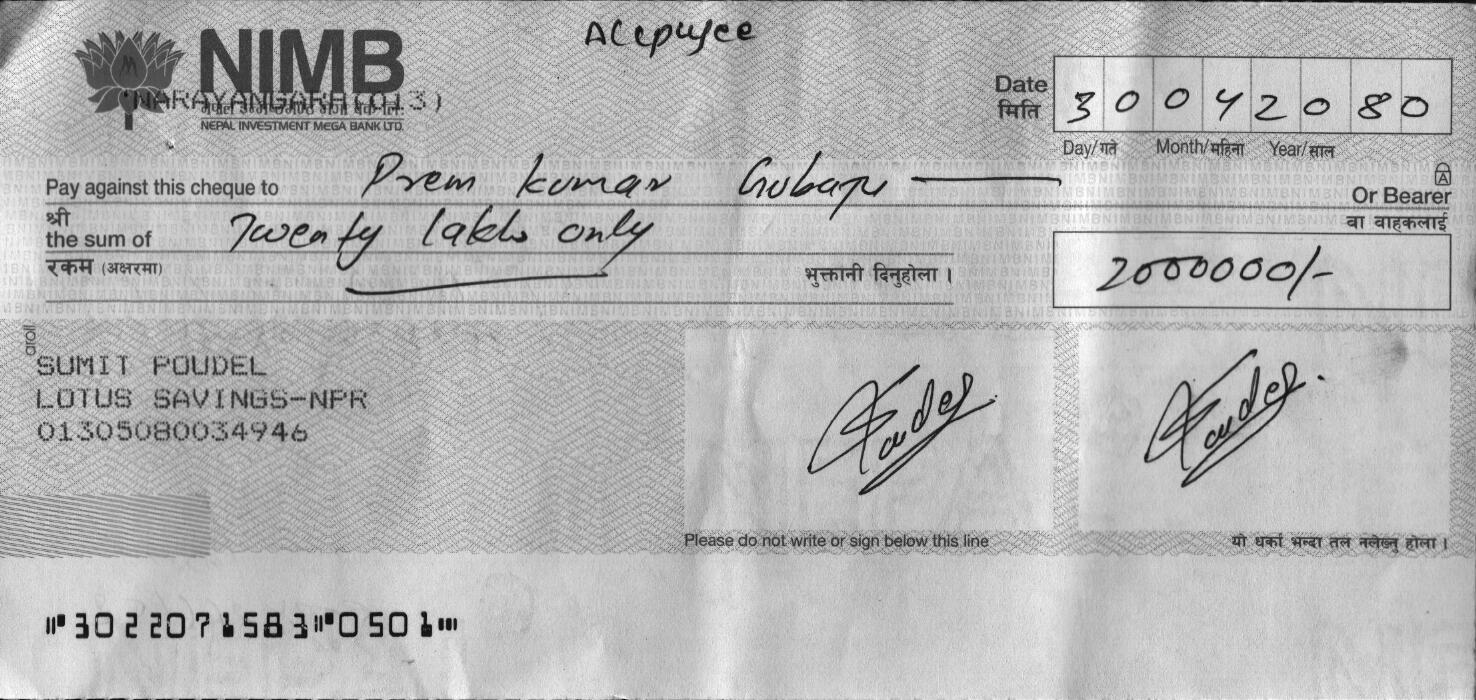 A/C payee
NIMB
NARAYANGARH(013)
NEPAL INVESTMENT MEGA BANK LTD.
Date
मिति
30 04 2080
Day/गते Month/महिना Year/साल
Pay against this cheque to Prem kumar
श्री
Or Bearer
वा वाहकलाई
the sum of Twenty lakhs only
रकम (अक्षरमा)
भुक्तानी दिनुहोला ।
2000000/-
SUMIT POUDEL
LOTUS SAVINGS-NPR
01305080034946
Poudel
Poudel.
Please do not write or sign below this line
यो धर्का भन्दा तल नलेख्नु होला ।
⑈3022071583⑈0501⑈